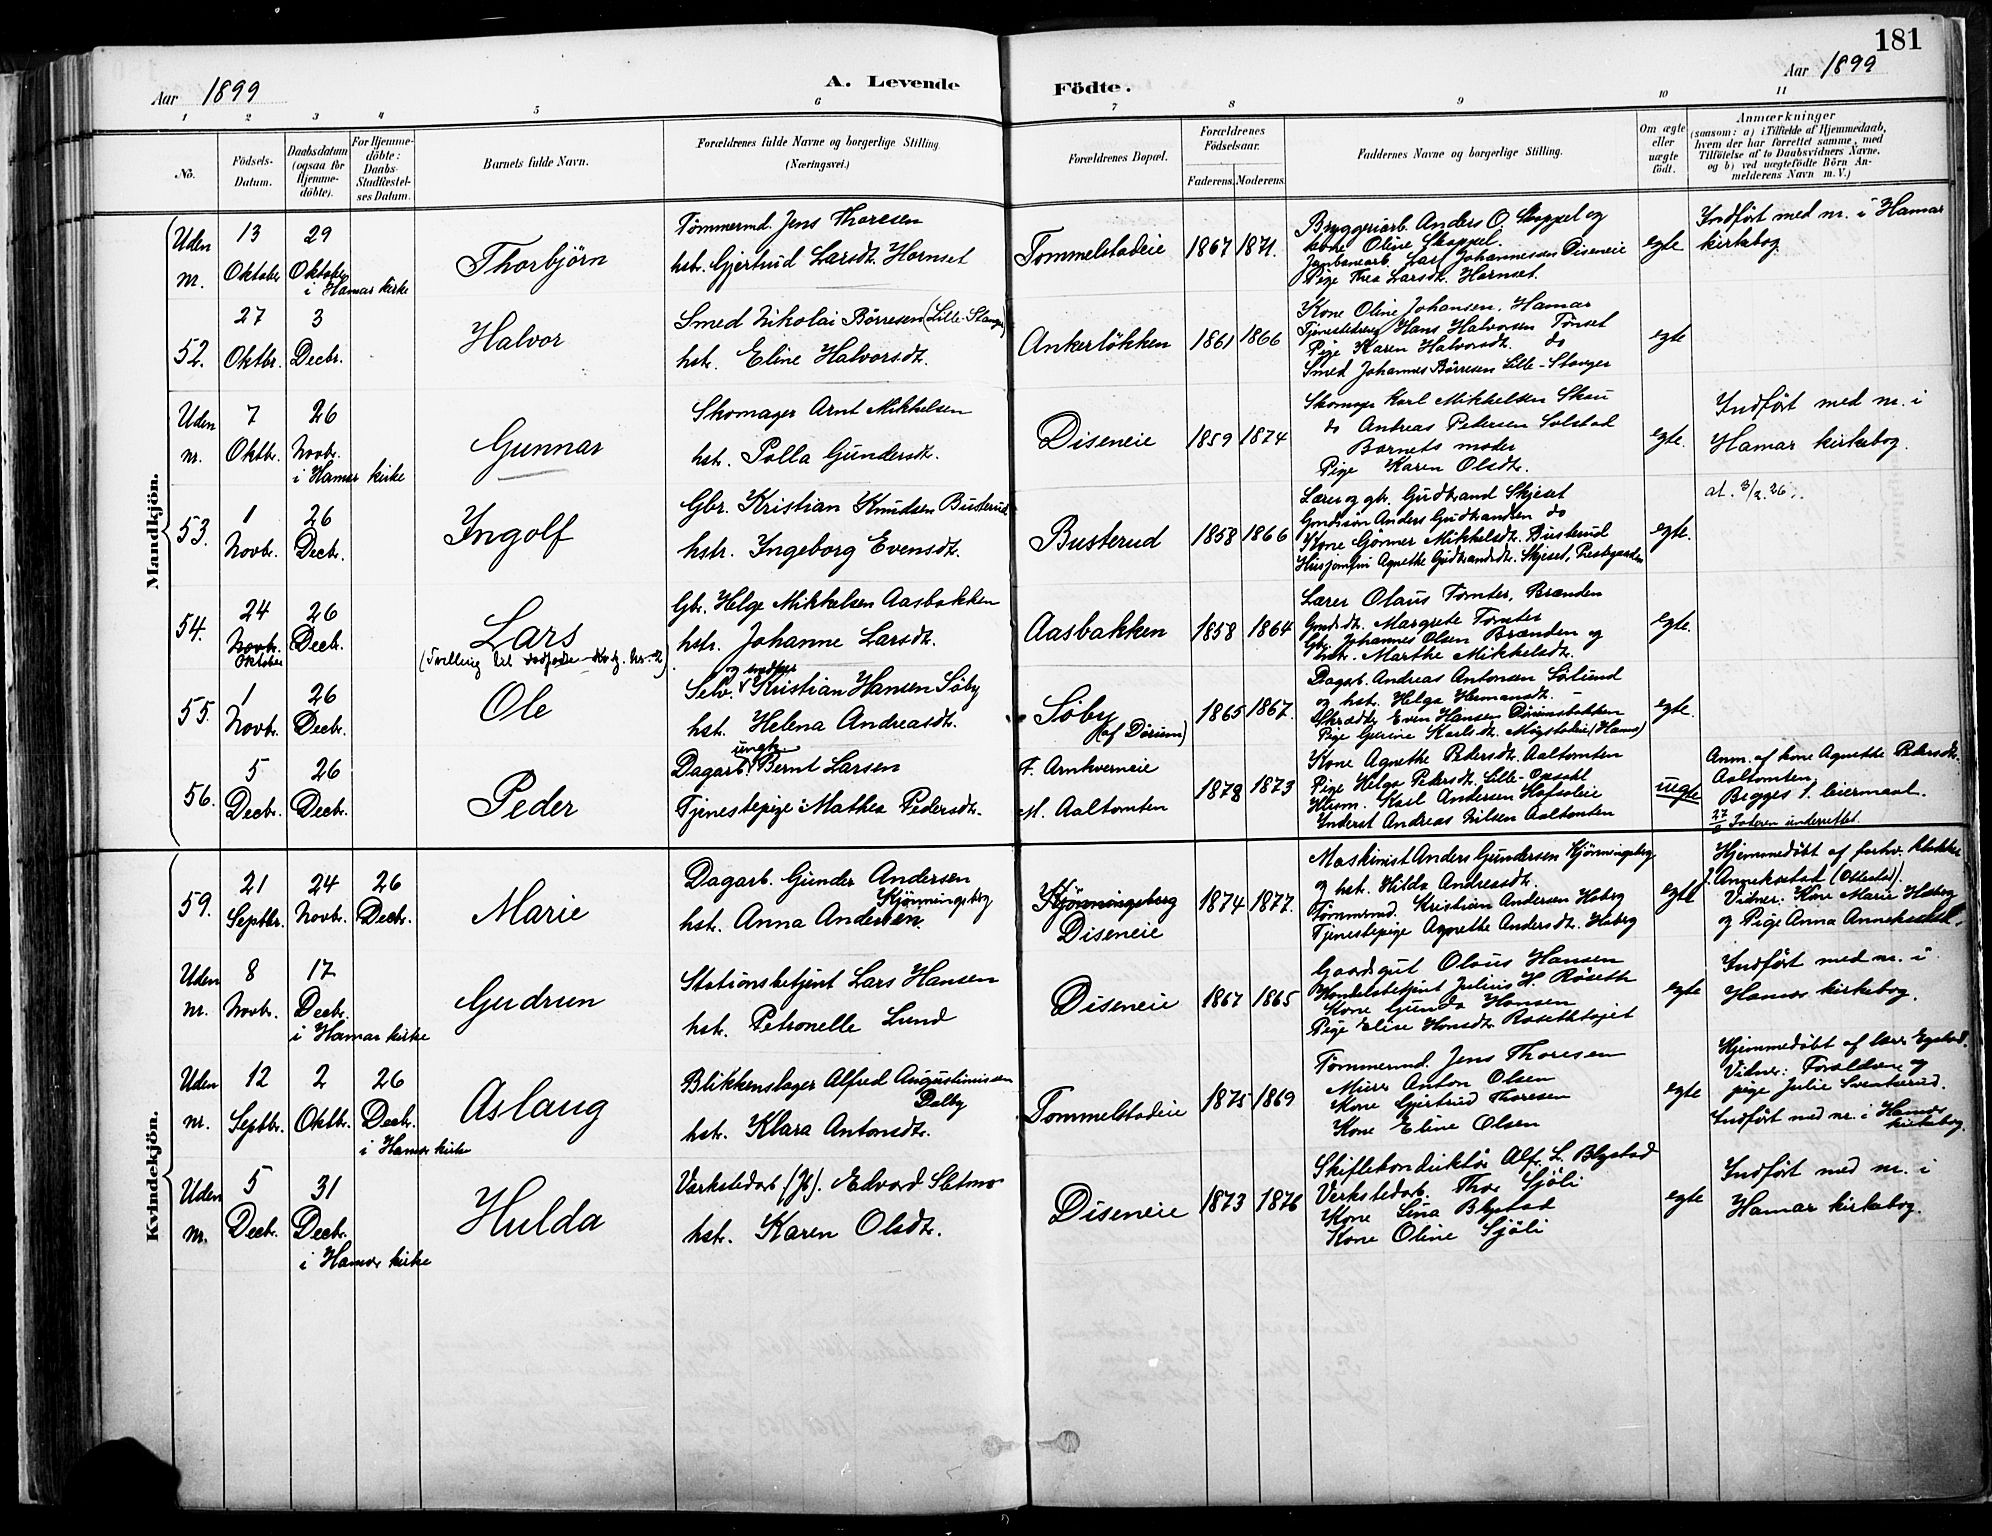 181
Aar 1899
A. Levende Födte.
Aar 1899
1 2 3 4 5 6 7 8 9 10 11
No.
Födsels-Datum.
Daabsdatum (ogsaa for Hjemmedöbte).
For Hjemmedöbte: Daabs-Stadfæstelses Datum.
Barnets fulde Navn.
Forældrenes fulde Navne og borgerlige Stilling (Næringsvei.)
Forældrenes Bopæl.
Forældrenes Födselsaar.
Faderens. Moderens.
Faddernes Navne og borgerlige Stilling.
Om ægte eller uægte födt.
Anmærkninger
(saasom: a) i Tilfælde af Hjemmedaab, hvem der har forrettet samme, med Tilföielse af to Daabsvidners Navne, og b) ved uægtefödte Börn Anmelderens Navn m. V.)
Mandkjön.
Uden nr.
13 Oktober
29 Oktober i Hamar kirke
Thorbjörn
Tømmermd. Jens Thoresen
hst. Gjertrud Larsdt. Hornset
Tommelstadeie
1867 1871.
Bryggeriarb. Anders O. Skappel og
kone Oline Skappel.
Jernbanearb. Lars Johannessen Diseneie
Pige Thea Larsdt. Hornset.
egte
Indført med nr. i Hamar
kirkebog.
52.
27 Oktbr.
3 Decbr.
Halvor
Smed Nikolai Børresen (Lille-Stanger)
hst. Eline Halvorsdt.
Ankerløkken
1861 1866
Kone Oline Johansen, Hamar
Tjenestedreng Hans Halvorsen Tønset
Pige Karen Halvorsdt. do
Smed Johannes Børresen Lille-Stanger
egte
Uden nr.
7 Oktbr.
26 Novbr. i Hamar kirke
Gunnar
Skomager Arnt Mikkelsen
hst. Polla Gundersdt.
Diseneie
1859 1874
Skomager Karl Mikkelsen Skau
do Andreas Petersen Solstad
Barnets moder
Pige Karen Olsdt.
egte.
Indført med nr. i
Hamar kirkebog.
at. 3/2.26.
53.
1 Novbr.
26 Decbr.
Ingolf
Gbr. Kristian Knudsen Busterud
hstr. Ingeborg Evensdt.
Busterud
1858 1866
Lærer og gbr. Gudbrand Skjeset
Gaardsøn Anders Gudbrandsen do
Kone Gønner Mikkelsdt. Busterud
Husjomfru Agnethe Gudbrandsdt. Skjeset, Prestgarden
egte.
54.
24 Novbr.
26 Decbr.
Lars
(Tvilling til dødfødte Kvkj. nr. 2)
Gbr. Helge Mikkelsen Aasbakken
hstr. Johanne Larsdt.
Aasbakken
1858 1864
Lærer Olaus Tomter, Brænden
Gmdsdt. Margrete Tomter
Gbr. Johannes Olsen Brænden og
hstr. Marthe Mikkelsdt.
egte.
55.
Oktober
1 Novbr.
26 Decbr.
Ole
Selv. og snedker Kristian Hansen Søby
hst. Helena Andreasdt.
Søby
(af Dørum)
1865 1867.
Dagarb. Andreas Antonsen Sølund
og hst. Helga Hermansdt.
Skrædder Even Hansen Dørumsbakken
Pige Gurine Karlsdt. Møgstadeie (Hamar)
egte.
56.
5 Decbr.
26 Decbr.
Peder
Dagarb. ungk. Bernt Larsen
Tjenestepige Mathea Pedersdt.
F. Arnkverneie
M. Aaltomten
1878 1873
Kone Agnethe Petersdt. Aaltomten
Pige Helga Petersdt. Lille-Opsahl
Husm. Karl Andersen Hofsoleie
Inderst Andreas Nilsen Aaltomten
uegte
Anm. af kone Agnethe Petersdt.
Aaltomten.
Begges 1. leiermaal.
27/3 Faderen underrettet.
Kvindekjön.
59.
21 Septbr.
24 Novbr.
26 Decbr.
Marie
Dagarb. Gunder Andersen
Kjønningsberg
hst. Anna Andersen.
Kjønningsberg
Diseneie
1874 1877.
Maskinist Anders Gundersen Kjønningsberg
og hst. Hilda Andreasdt.
Tømmermd. Kristian Andersen Haberg
Tjenestepige Agnethe Andersdt. Haberg
egte
Hjemmedøbt af forhv. klokker
J. Annekstad (Ottestad).
Vidner: Kone Marie Haberg
og Pige Anna Annekstad.
Uden nr.
8 Novbr.
17 Decbr. i Hamar kirke
Gudrun
Stationsbetjent Lars Hansen
hst. Petronelle Lund
Diseneie
1867 1865
Gaardsgut Olaus Hansen
Handelsbetjent Julius H. Røseth
Kone Gunda Hansen
Pige Elise Hansdt.
egte
Indført med nr. i
Hamar kirkebog.
Uden nr.
12 Septbr.
2 Oktbr.
26 Decbr. i Hamar kirke
Aslaug
Blikkenslager Alfred Augustinussen
Dalby
hst. Klara Antonsdt.
Tommelstadeie
1875 1869
Tømmermd. Jens Thoresen
Murer Anton Olsen
Kone Gjertrud Thoresen
Kone Eline Olsen
egte
Hjemmedøbt af lærer Egstad.
Vidner: Forældrene og
pige Julie Svenkerud.
Indført med nr. i Hamar
kirkebog.
Uden nr.
5 Decbr.
31 Decbr. i Hamar kirke
Hulda
Værkstedarb. (Jb). Edvard Sletmo
hst. Karen Olsdt.
Diseneie
1873 1876
Skiftekonduktør Alf. L. Blystad
Verkstedarb. Thor Sjøli
Kone Lina Blystad
Kone Oline Sjøli
egte
Indført med nr. i
Hamar kirkebog.